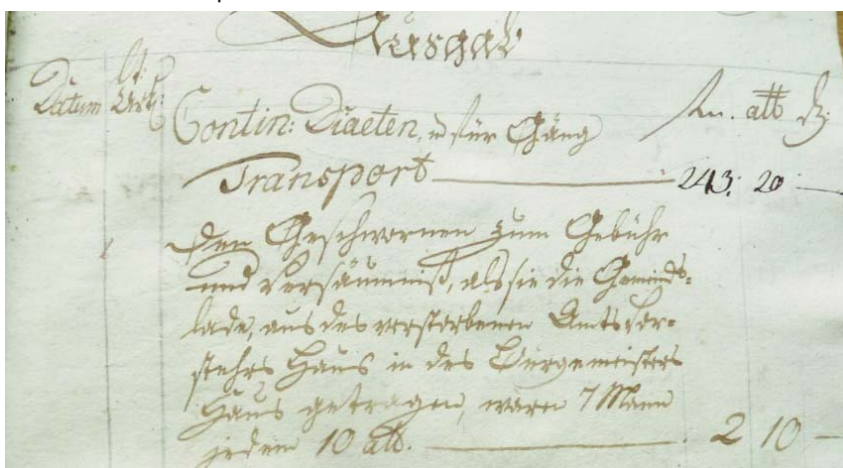 Ausgab
Datum Urk: Contin: Diaeten, u für Gäng alb
Transport 243: 20
Den Geschwornen zum Gebühr
und Versäumniß, als sie die Gemeinds-
lade, aus des verstorbenen Amts Vor-
stehrs Haus in des Burgemeisters
Haus getragen, waren 7 Mann
jedem 10 alb. 2 10 —